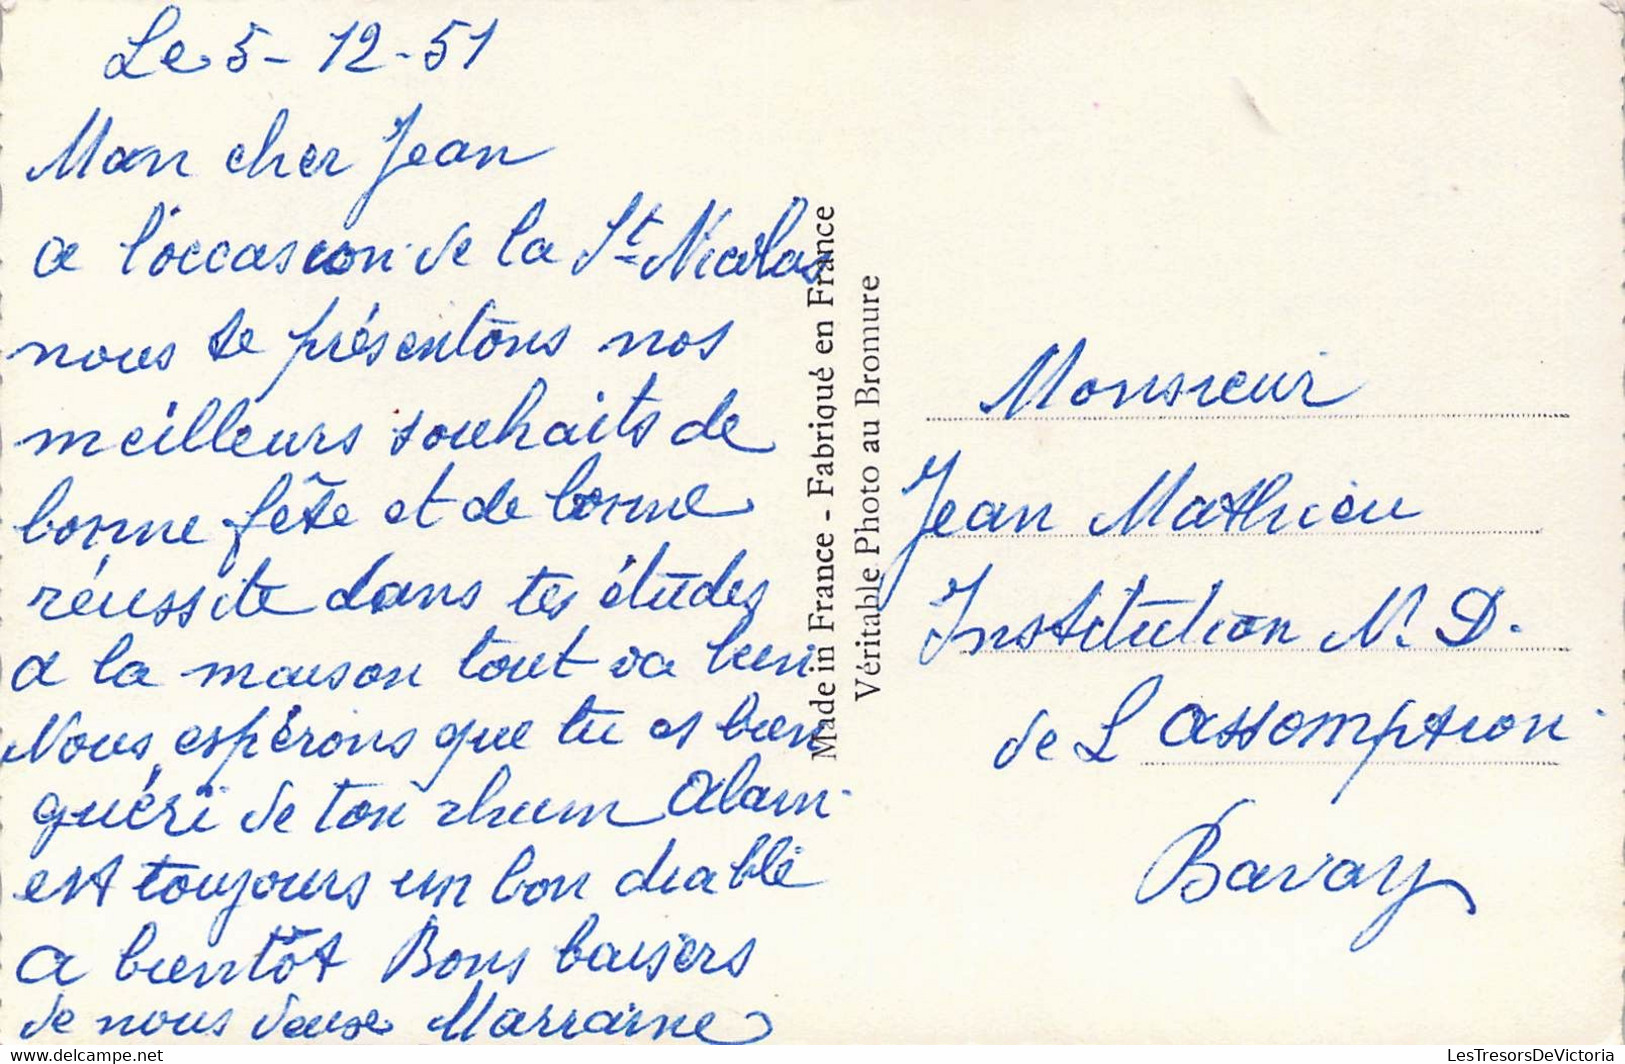 Le 5-12-51
Mon cher Jean
a l'occasion de la St-Nicolas
nous te présentons nos
meilleurs souhaits de
bonne fête et de bonne
réussite dans tes études
a la maison tout va bien
Nous espérons que tu es bien
guéri de ton rhum Alain
est toujours un bon diable
a bientôt Bons baisers
de nous deux Marraine
Made in France - Fabriqué en France
Véritable Photo au Bromure
Monsieur
Jean Mathieu
Institution N. D.
de L assomption
Bavay
LesTresorsDeVictoria.com